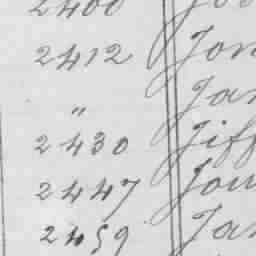 2400
2412 Jon
" Jan
2430 Jiff
2447 Jon
2459 Jan